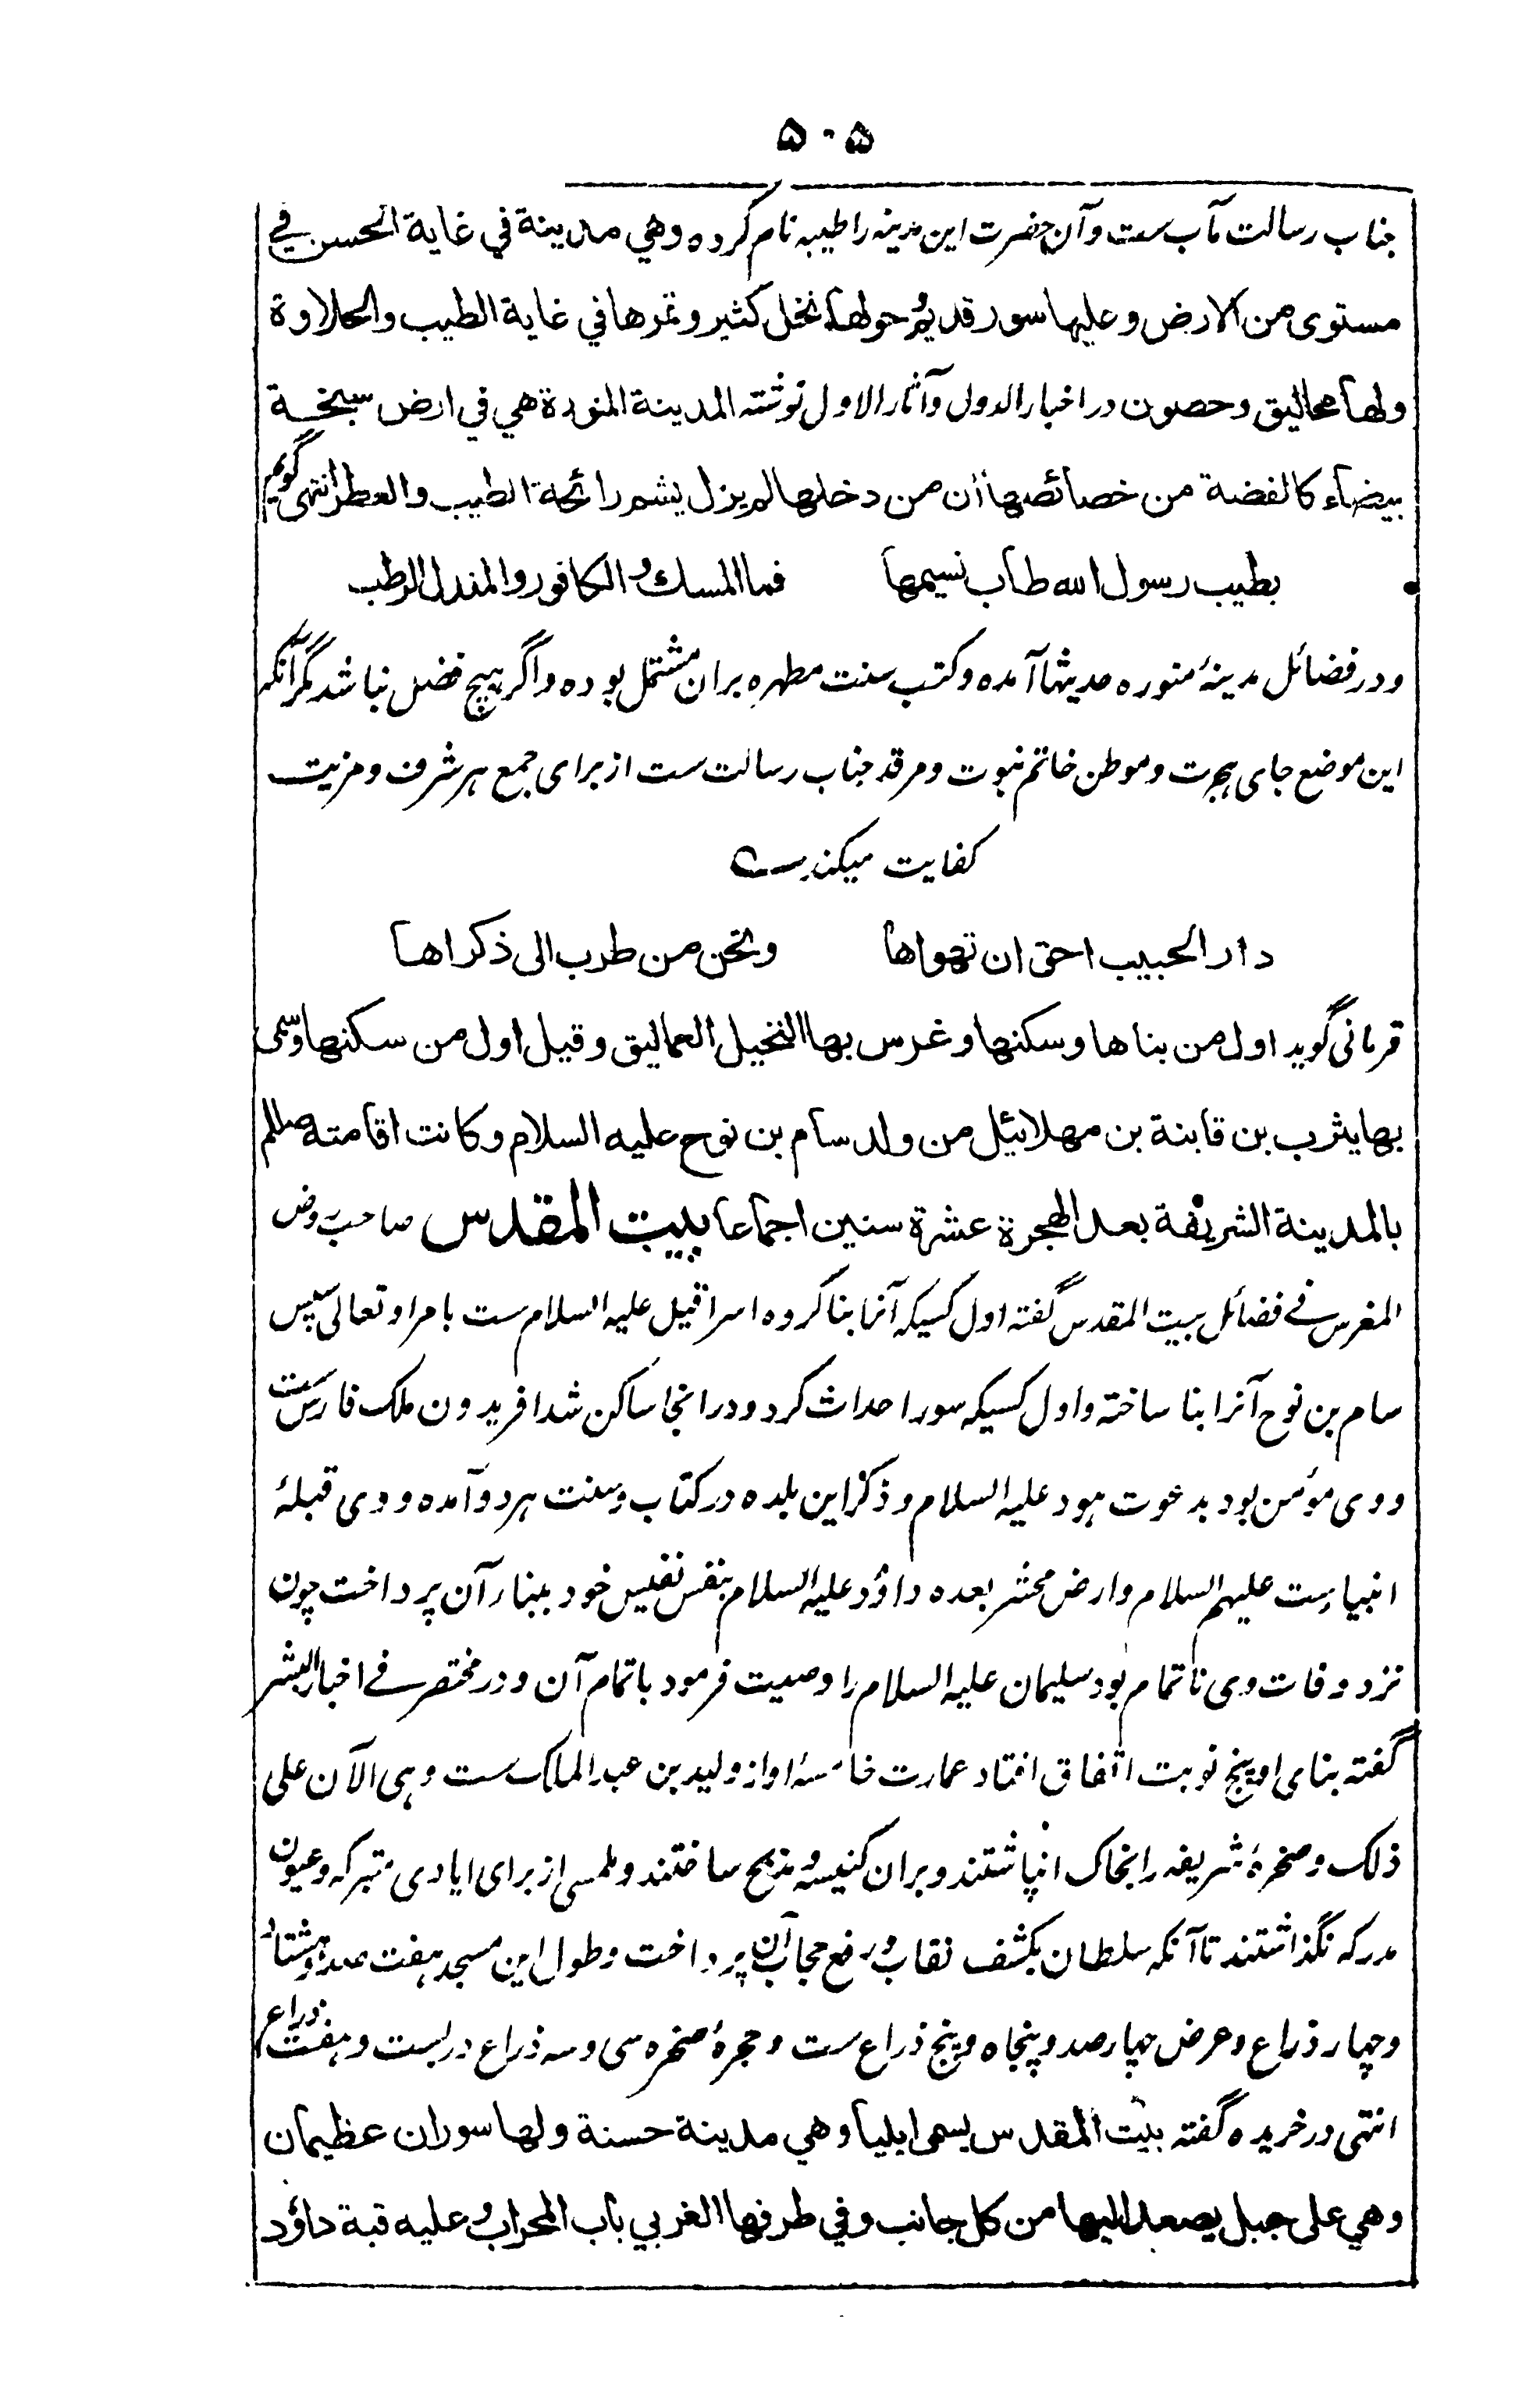 ۵۰۵
جناب رسالت مآب ست و آن حضرت این مدینه را طیبه نام کرده وهي مدينة في غاية الحسن في
مستوى من الارض وعليها سور قديم حولها نخل كثير وتمرها في غاية الطيب والحلاوة
ولها مخاليق وحصون در اخبار الدول وآثار الاول نوشته المدينة المنورة هي في ارض سبخة
بيضاء كالفضة من خصائصها أن من دخلها لم يزل يشم رائحة الطيب والعطر انتهى گویم
بطيب رسول الله طاب نسيمها فما المسك والكافور والمندل الرطب
و در فضائل مدینهٔ منوره حدیثها آمده و کتب سنت مطهره بران مشتمل بوده و اگر هیچ فضل نباشد مگر آنکه
این موضع جای هجرت و موطن خاتم نبوت و مرقد جناب رسالت ست از برای جمع هر شرف و مزیت
کفایت میکند
دار الحبيب احق ان تهواها ونحن من طرب الى ذكراها
قرمانی گوید اول من بناها وسكنها وغرس بها النخيل العماليق وقيل اول من سكنها وسمى
بها يثرب بن قابنة بن مهلائيل من ولد سام بن نوح عليه السلام وكانت اقامته صللم
بالمدينة الشريفة بعد الهجرة عشرة سنين اجماعا بيت المقدس صاحب روض
المغرس فی فضائل بیت المقدس گفته اول کسیکه آنرا بنا کرده اسرافیل علیه السلام ست بامر او تعالی سپس
سام بن نوح آنرا بنا ساخته و اول کسیکه سور احداث کرد و در انجا ساکن شد افریدون ملک فارس ست
و وی مؤمن بود بدعوت هود علیه السلام و ذکر این بلده در کتاب و سنت هر دو آمده و وی قبلهٔ
انبیاست علیهم السلام و ارض محشر بعده داؤد علیه السلام بنفس نفیس خود ببناء آن پرداخت چون
نزد وفات وی ناتمام بود سلیمان علیه السلام را وصیت فرمود باتمام آن و در مختصر فی اخبار البشر
گفته بنای او پنج نوبت اتفاق افتاد عمارت خامسهٔ او از ولید بن عبدالملک ست و هی الآن علی
ذلک و صخرهٔ شریفه را بخاک انپاشتند و بران کنیسه و مذبح ساختند و ملمسی از برای ایادی متبرکه و عیون
مدرکه نگذاشتند تا آنکه سلطان بکشف نقاب و رفع حجاب آن پرداخت و طول این مسجد هفت صد و هشتاد
و چهار ذراع و عرض چهار صد و پنجاه و پنج ذراع ست و حجرهٔ صخره سی و سه ذراع در بست و هفت ذراع
انتهی در خریده گفته بيت المقدس يسمى ايليا وهي مدينة حسنة ولها سوران عظيمان
وهي على جبل يصعد اليها من كل جانب وفي طرفها الغربي باب المحراب وعليه قبة داؤد